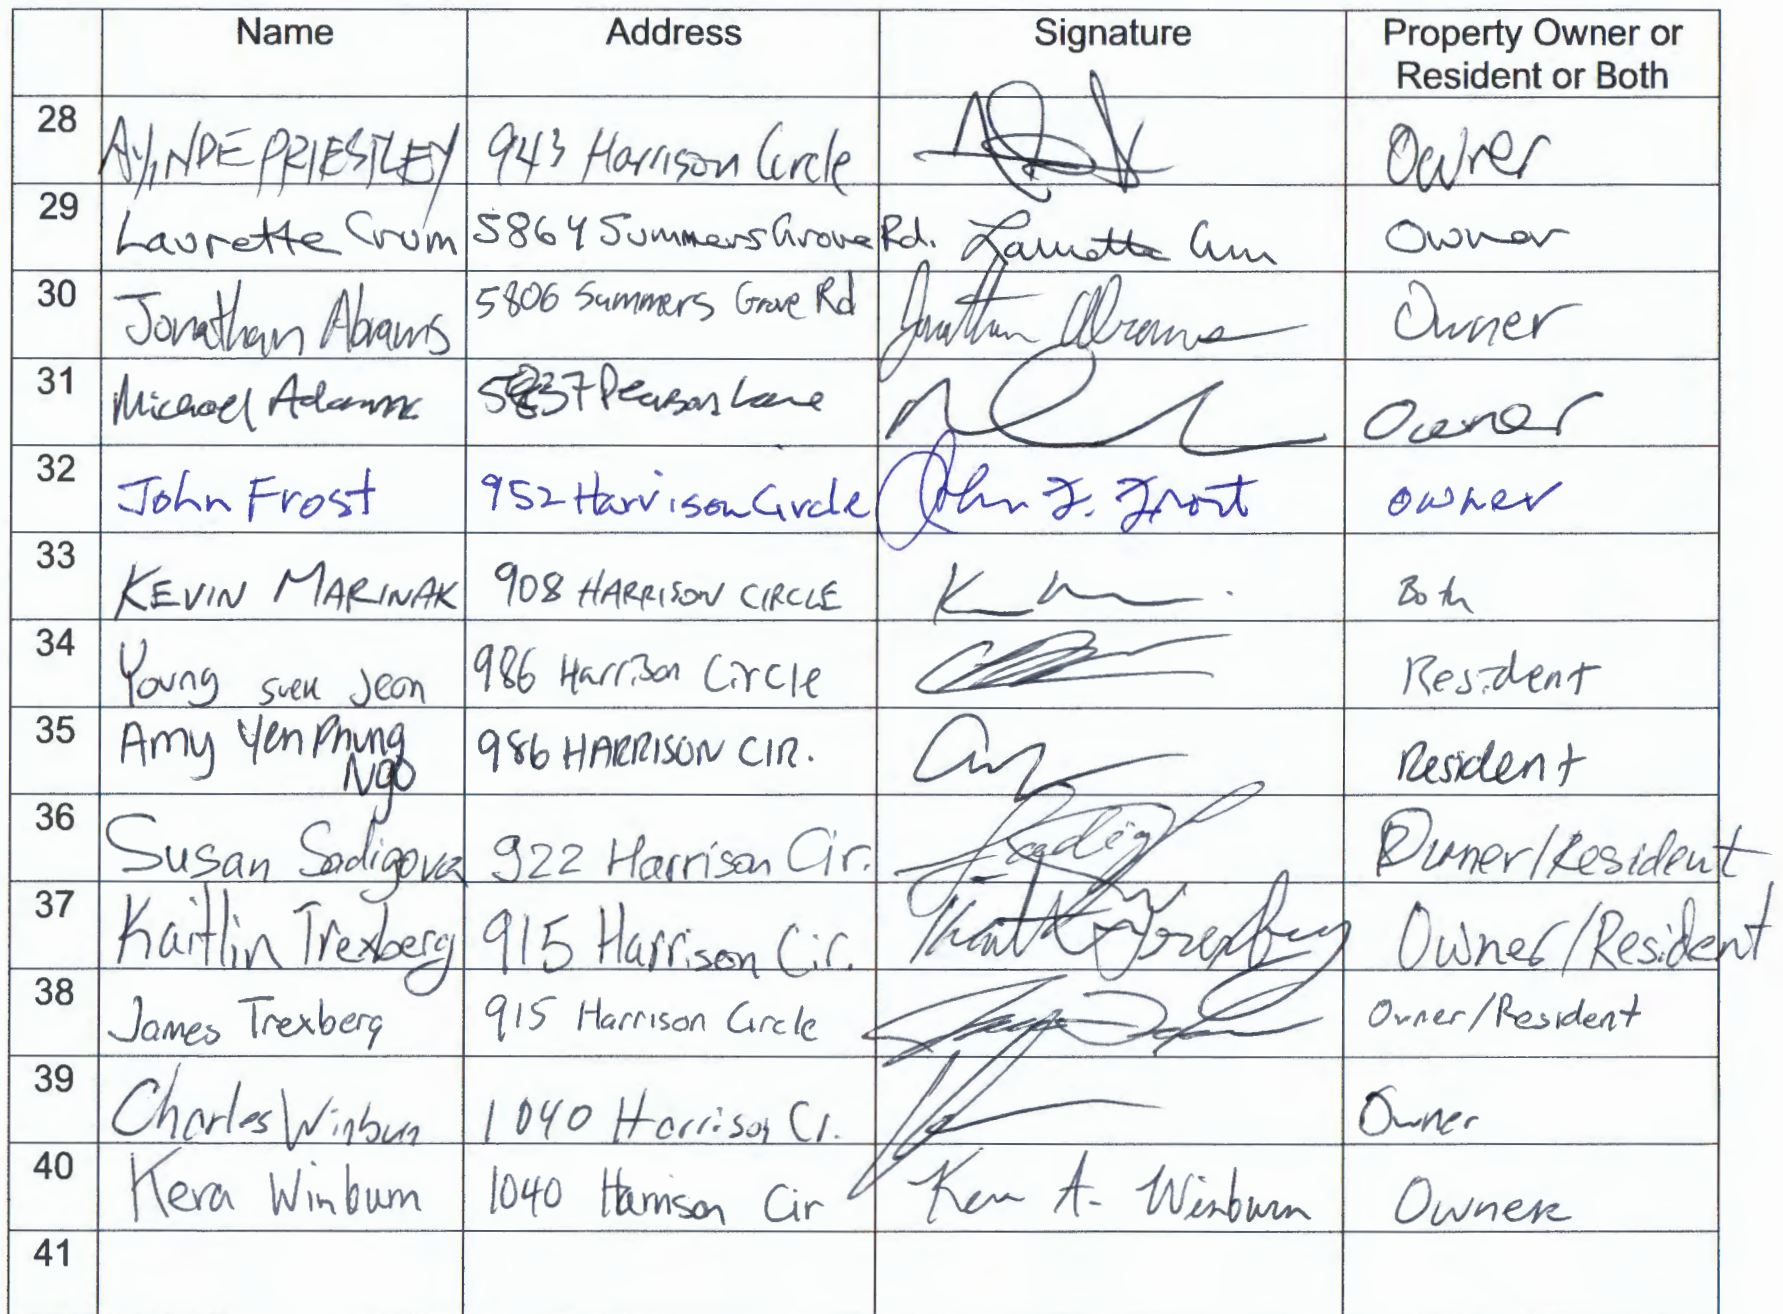 Name Address Signature Property Owner or
Resident or Both
28 AYINDE PRIESTLEY 943 Harrison Circle Owner
29 Laurette Crum 5864 Summers Grove Rd. Laurette Crum Owner
30 Jonathan Abrams 5806 Summers Grove Rd Jonathan Abrams Owner
31 Michael Adams 5837 Pearson Lane Owner
32 John Frost 952 Harrison Circle John F. Frost owner
33 KEVIN MARINAK 908 HARRISON CIRCLE Both
34 Young suek Jeon 986 Harrison Circle Resident
35 Amy Yen Phung
Ngo 986 HARRISON CIR. Resident
36 Susan Sadigova 922 Harrison Cir. Owner/Resident
37 Kaitlin Trexberg 915 Harrison Cir. Kaitlin Trexberg Owner/Resident
38 James Trexberg 915 Harrison Circle Owner/Resident
39 Charles Winburn 1040 Harrison Ci. Owner
40 Kera Winburn 1040 Harrison Cir Kera A. Winburn Owner
41